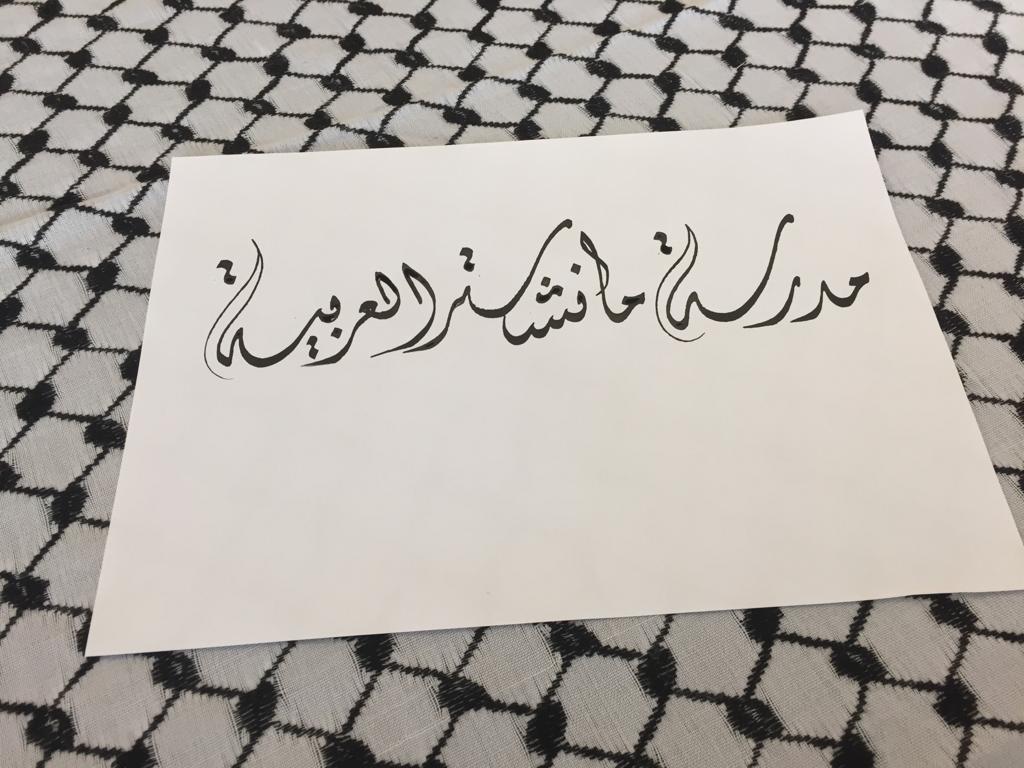 مدرسة مانشستر العربية